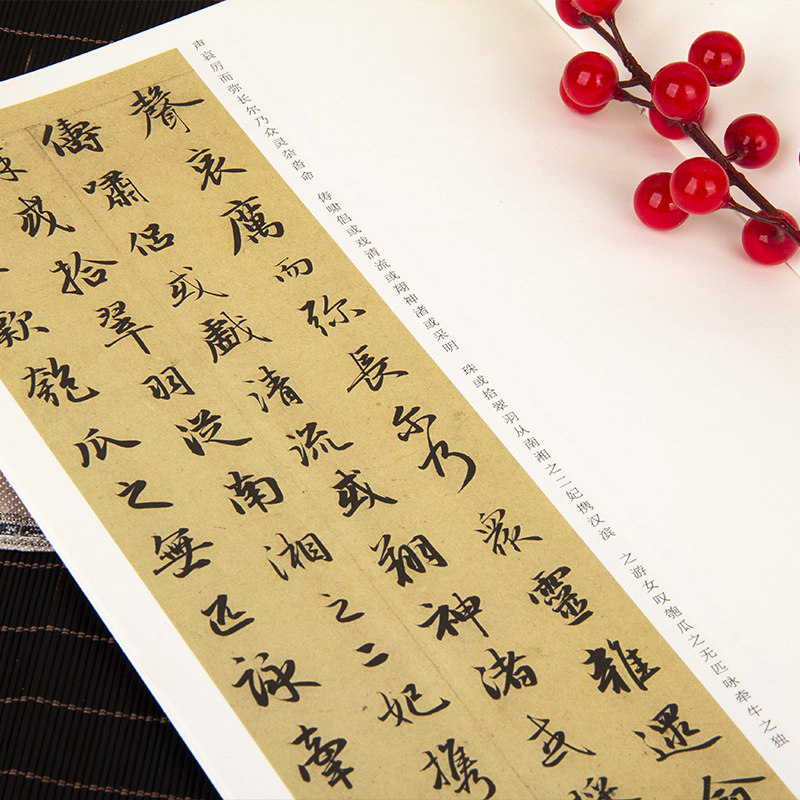 聲哀厲而弥長尔乃衆靈雜遝命
儔嘯侶或戲清流或翔神渚或採
或拾翠羽從南湘之二妃携
歎匏瓜之無匹詠牽
声哀厉而弥长尔乃众灵杂沓命 俦啸侣或戏清流或翔神渚或采明 珠或拾翠羽从南湘之二妃携汉滨 之游女叹匏瓜之无匹咏牵牛之独